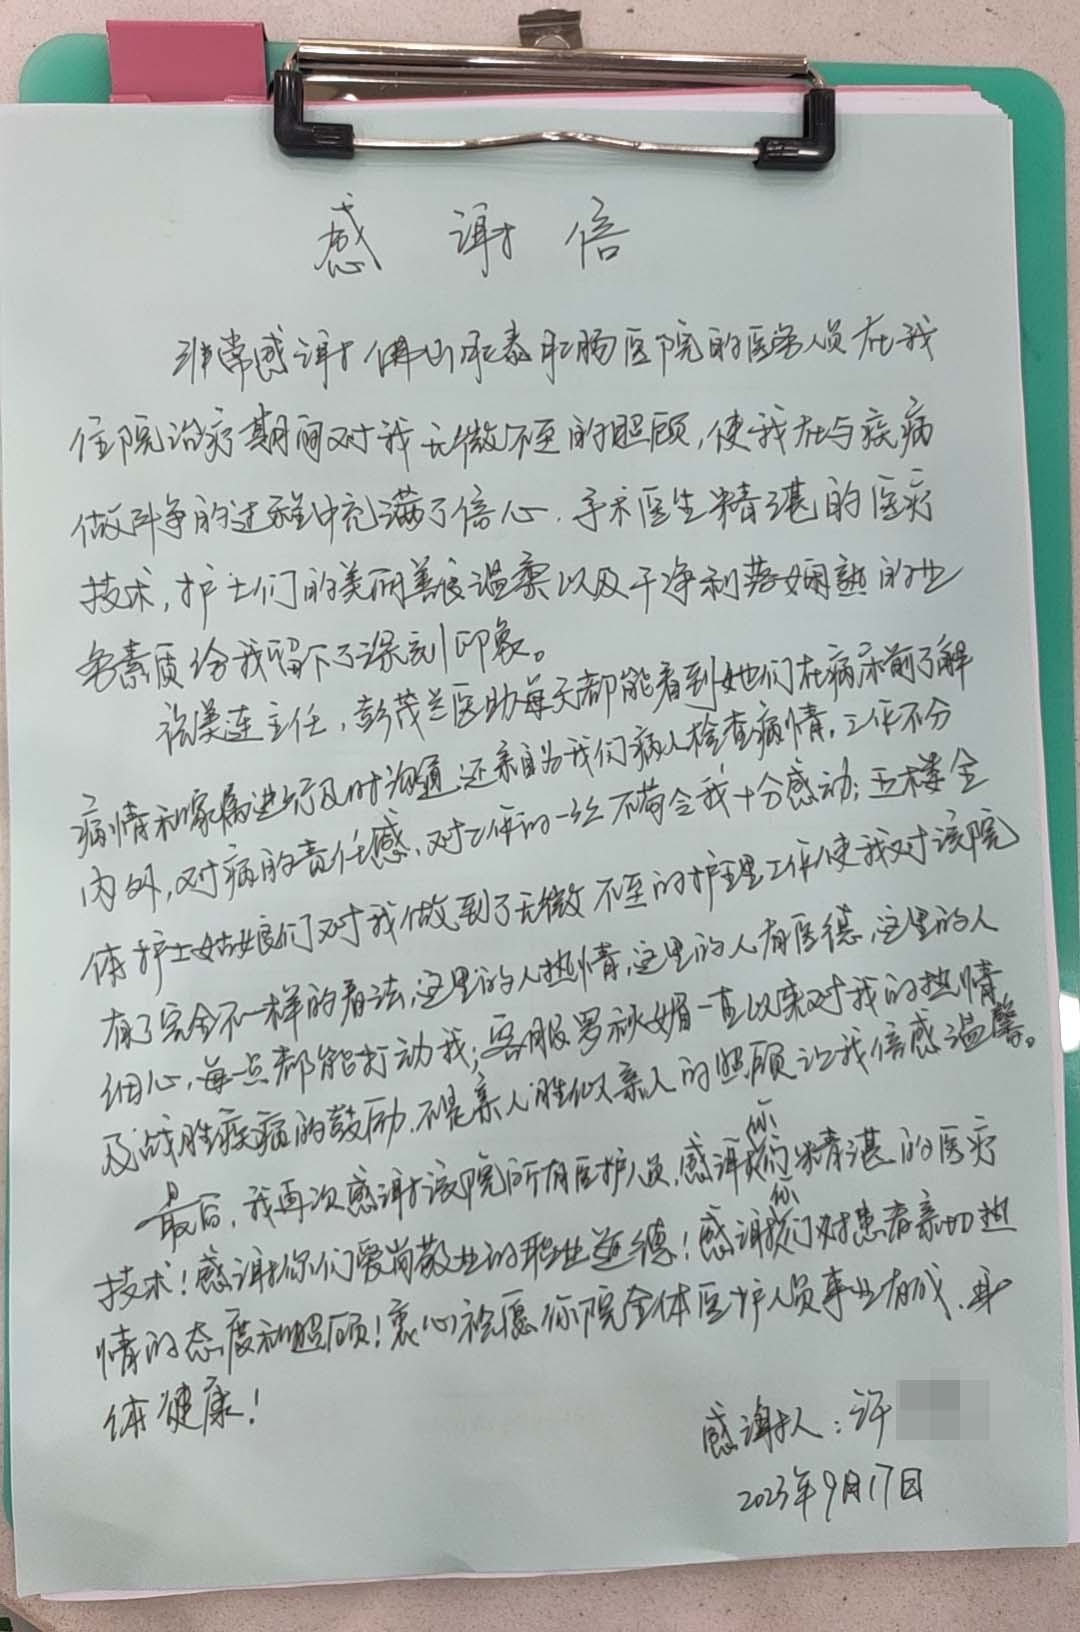 感谢信
非常感谢佛山承泰肛肠医院的医务人员在我
住院治疗期间对我无微不至的照顾，使我在与疾病
做斗争的过程中充满了信心．手术医生精湛的医疗
技术，护士们的美丽善良温柔以及干净利落娴熟的业
务素质给我留下了深刻印象。
张美连主任，彭茂兰医助每天都能看到她们在病床前了解
病情和家属进行及时沟通，还亲自为我们病人检查病情，工作不分
内外，对病的责任感，对工作的一丝不苟令我十分感动；五楼全
体护士姑娘们对我做到了无微不至的护理工作使我对该院
有了完全不一样的看法，这里的人热情，这里的人有医德，这里的人
细心，每一点都能打动我；客服罗秋媚一直以来对我的热情
及战胜疾病的鼓励．不是亲人胜似亲人的照顾让我倍感温馨。
最后，我再次感谢该院所有医护人员，感谢你们精湛的医疗
技术！感谢你们爱岗敬业的职业道德！感谢你们对患者亲切热
情的态度和照顾！衷心祝愿你院全体医护人员事业有成．身
体健康！
感谢人：许
2023年9月17日